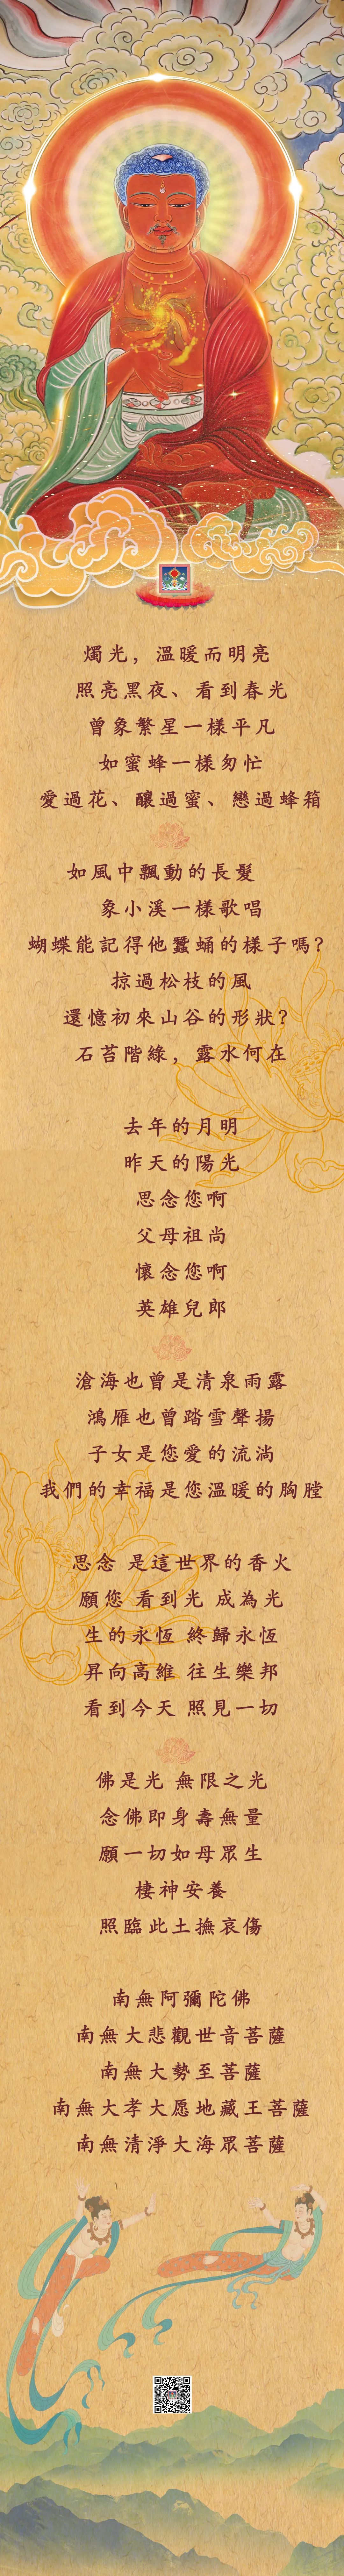 燭光，溫暖而明亮
照亮黑夜、看到春光
曾象繁星一樣平凡
如蜜蜂一樣匆忙
愛過花、釀過蜜、戀過蜂箱
如風中飄動的長髮
象小溪一樣歌唱
蝴蝶能記得他蠶蛹的樣子嗎？
掠過松枝的風
還憶初來山谷的形狀？
石苔階綠，露水何在
去年的月明
昨天的陽光
思念您啊
父母祖尚
懷念您啊
英雄兒郎
滄海也曾是清泉雨露
鴻雁也曾踏雪聲揚
子女是您愛的流淌
我們的幸福是您溫暖的胸膛
思念 是這世界的香火
願您 看到光 成為光
生的永恆 終歸永恆
昇向高維 往生樂邦
看到今天 照見一切
佛是光 無限之光
念佛即身壽無量
願一切如母眾生
棲神安養
照臨此土撫哀傷
南無阿彌陀佛
南無大悲觀世音菩薩
南無大勢至菩薩
南無大孝大愿地藏王菩薩
南無清淨大海眾菩薩